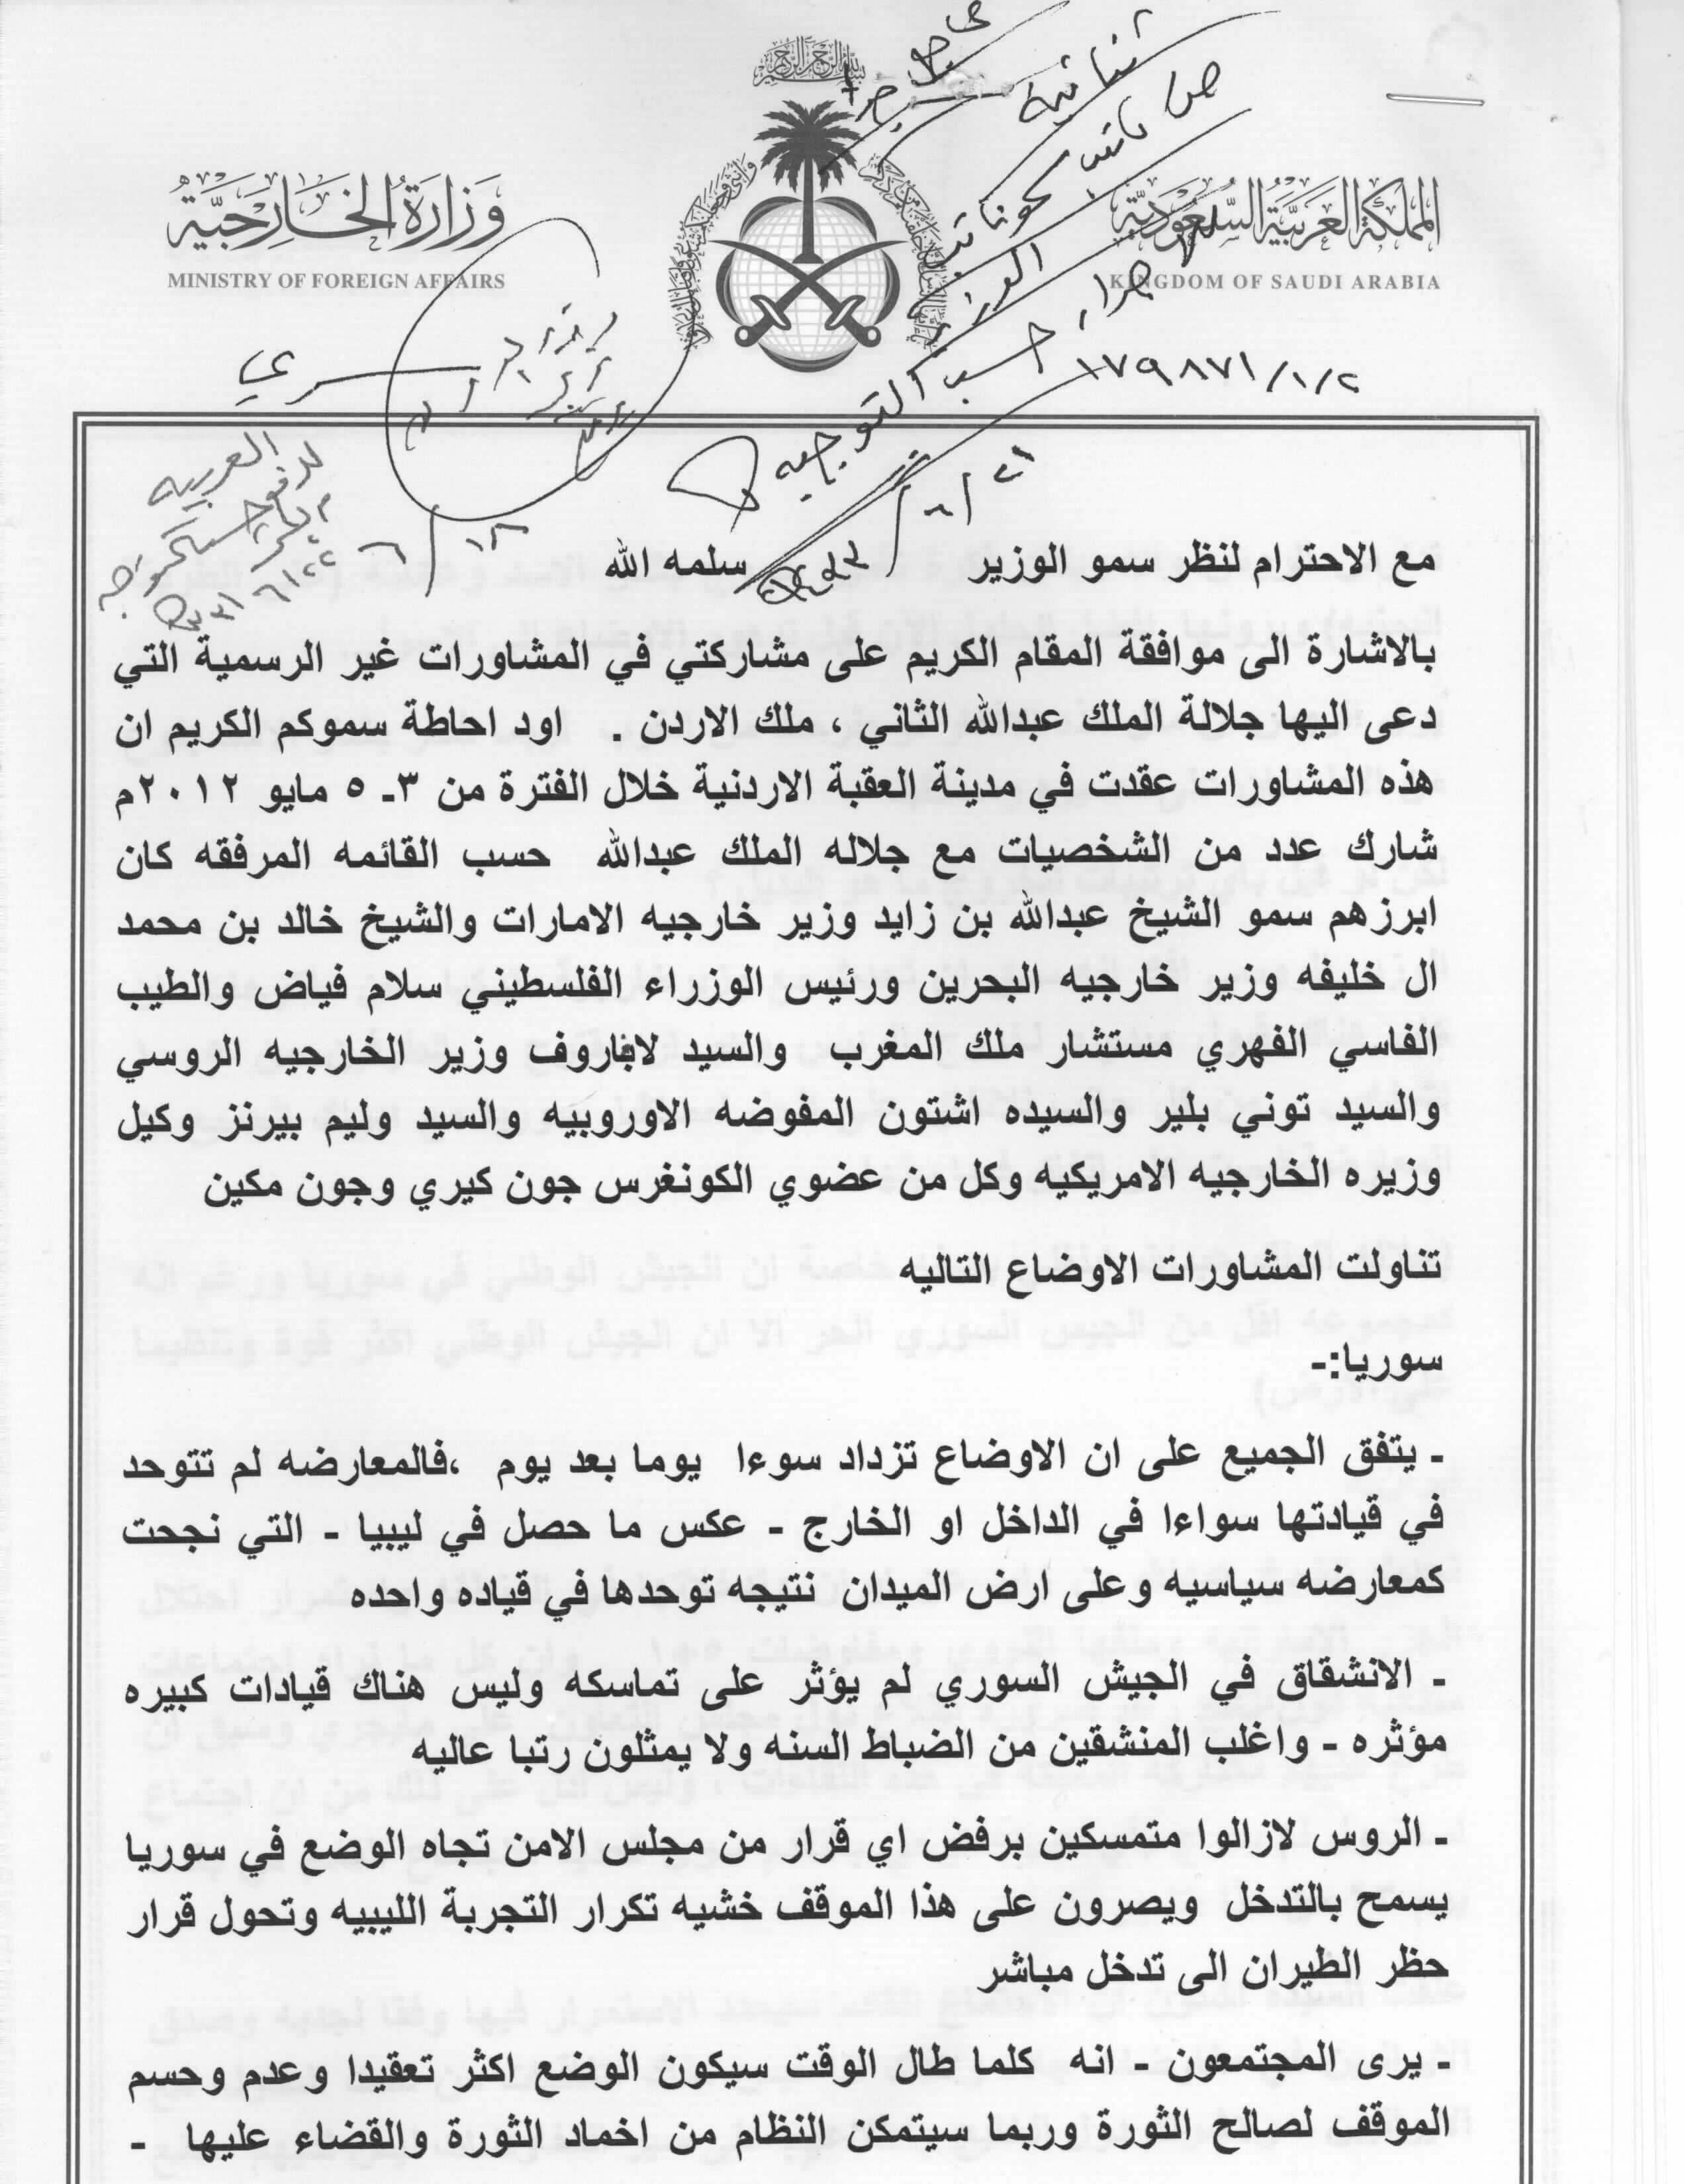 بسم الله الرحمن الرحيم
المملكة العربية السعودية
KINGDOM OF SAUDI ARABIA
وزارة الخارجية
MINISTRY OF FOREIGN AFFAIRS
ثنائية
الوزير
حسب التوجيه
١٧٩٨٧١/١/٢
سري
العربيه
٢١/٦
١٨/٦
مع الاحترام لنظر سمو الوزير سلمه الله
بالاشارة الى موافقة المقام الكريم على مشاركتي في المشاورات غير الرسمية التي
دعى اليها جلالة الملك عبدالله الثاني ، ملك الاردن . اود احاطة سموكم الكريم ان
هذه المشاورات عقدت في مدينة العقبة الاردنية خلال الفترة من ٣ـ ٥ مايو ٢٠١٢م
شارك عدد من الشخصيات مع جلاله الملك عبدالله حسب القائمه المرفقه كان
ابرزهم سمو الشيخ عبدالله بن زايد وزير خارجيه الامارات والشيخ خالد بن محمد
ال خليفه وزير خارجيه البحرين ورئيس الوزراء الفلسطيني سلام فياض والطيب
الفاسي الفهري مستشار ملك المغرب والسيد لافاروف وزير الخارجيه الروسي
والسيد توني بلير والسيده اشتون المفوضه الاوروبيه والسيد وليم بيرنز وكيل
وزيره الخارجيه الامريكيه وكل من عضوي الكونغرس جون كيري وجون مكين
تناولت المشاورات الاوضاع التاليه
سوريا:-
- يتفق الجميع على ان الاوضاع تزداد سوءا يوما بعد يوم ،فالمعارضه لم تتوحد
في قيادتها سواءا في الداخل او الخارج - عكس ما حصل في ليبيا - التي نجحت
كمعارضه سياسيه وعلى ارض الميدان نتيجه توحدها في قياده واحده
- الانشقاق في الجيش السوري لم يؤثر على تماسكه وليس هناك قيادات كبيره
مؤثره - واغلب المنشقين من الضباط السنه ولا يمثلون رتبا عاليه
- الروس لازالوا متمسكين برفض اي قرار من مجلس الامن تجاه الوضع في سوريا
يسمح بالتدخل ويصرون على هذا الموقف خشيه تكرار التجربة الليبيه وتحول قرار
حظر الطيران الى تدخل مباشر
- يرى المجتمعون - انه كلما طال الوقت سيكون الوضع اكثر تعقيدا وعدم وحسم
الموقف لصالح الثورة وربما سيتمكن النظام من اخماد الثورة والقضاء عليها -